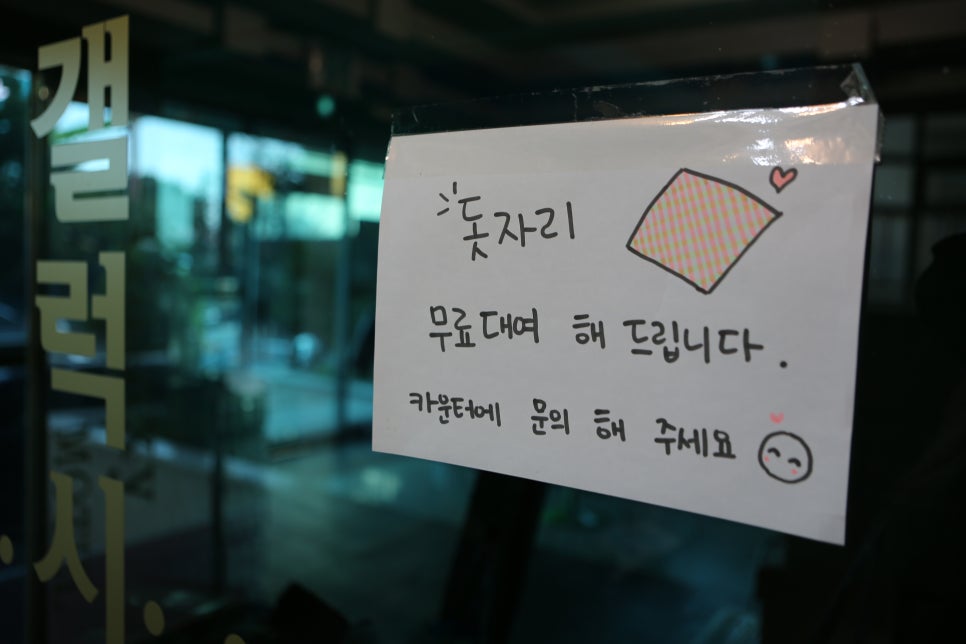 갤럭시
돗자리
무료대여 해 드립니다.
카운터에 문의 해 주세요